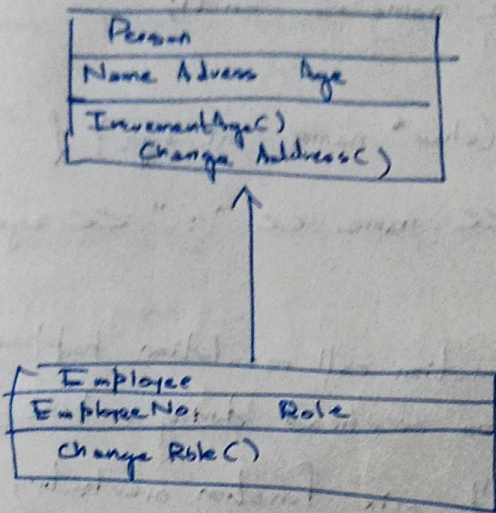 Person
Name Adress Age
IncrementAge()
Change Address()
Employee
EmployeeNo. Role
Change Role()